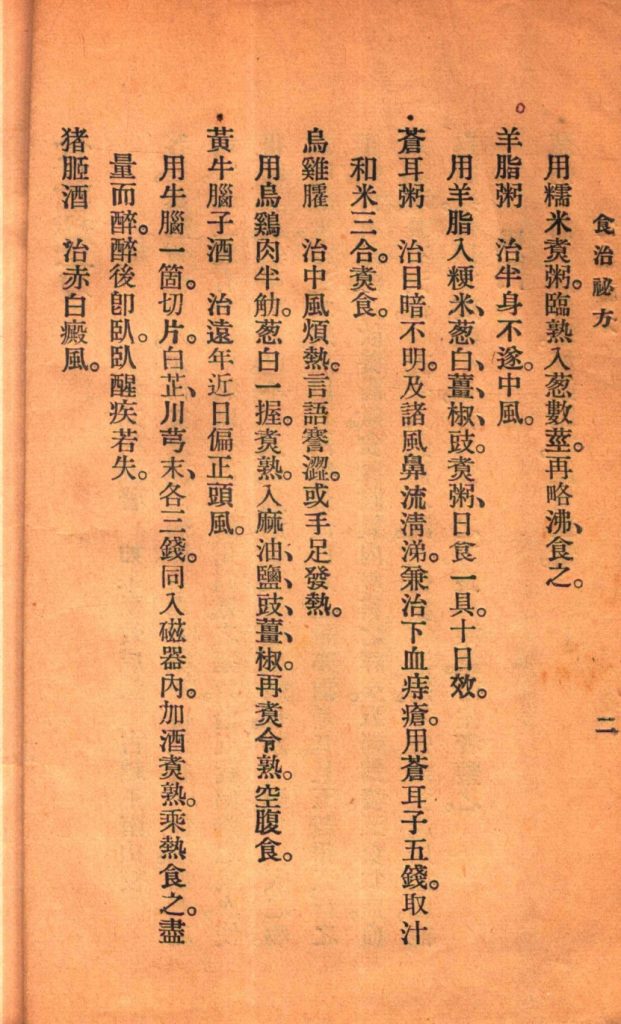 食治祕方
二
用糯米煑粥。臨熟入葱數莖。再略沸、食之。
羊脂粥　治半身不遂。中風。
用羊脂入粳米、葱白、薑、椒、豉、煑粥、日食一具。十日效。
蒼耳粥　治目暗不明。及諸風鼻流淸涕。兼治下血痔瘡。用蒼耳子五錢。取汁
和米三合。煑食。
烏雞臛　治中風煩熱。言語謇澀。或手足發熱。
用烏鷄肉半觔。葱白一握。煑熟。入麻油、鹽、豉、薑、椒。再煑令熟。空腹食。
黃牛腦子酒　治遠年近日偏正頭風。
用牛腦一箇。切片。白芷、川芎末、各三錢。同入磁器內。加酒煑熟。乘熱食之。盡
量而醉。醉後卽臥。臥醒疾若失。
猪胵酒　治赤白癜風。